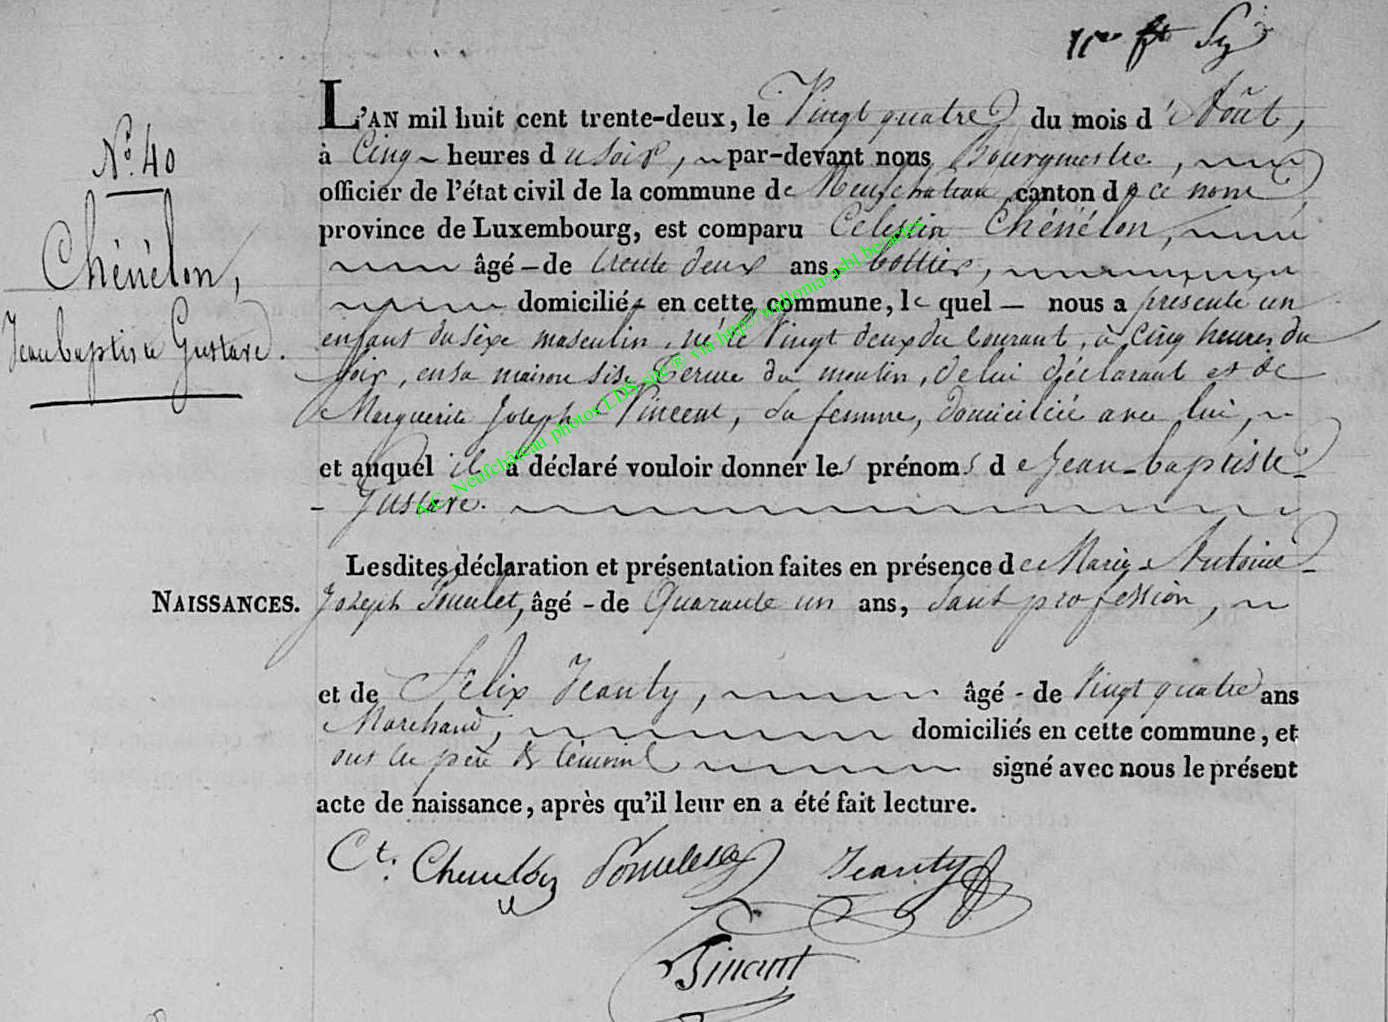 1er ft
L'AN mil huit cent trente-deux, le Vingt quatre du mois d'Août,
N° 40
à Cinq heures du soir, par-devant nous Bourgmestre,
officier de l'état civil de la commune de Neufchateau canton de ce nom
Chénélon,
province de Luxembourg, est comparu Célestin Chénélon,
âgé de trente deux ans, bottier,
domicilié en cette commune, le quel nous a présenté un
Jeanbaptiste Gustave.
enfant du séxe masculin, né le Vingt deux du Courant, à Cinq heures du
soir, en sa maison sise Terme du moulin, de lui déclarant et de
Marguerite Joseph Vincent, sa femme, domiciliée avec lui,
et auquel il a déclaré vouloir donner les prénoms de Jean-baptiste
Gustave.
A.C. Neufchâteau photos LDS
Lesdites déclaration et présentation faites en présence de Marie Antoine
NAISSANCES.
Joseph âgé de Quarante un ans, sans profession,
et de Félix Jeanty, âgé de Vingt quatre ans
Marchand, domiciliés en cette commune, et
ont les père & témoins signé avec nous le présent
acte de naissance, après qu'il leur en a été fait lecture.
Ct. Chenelon Jeanty